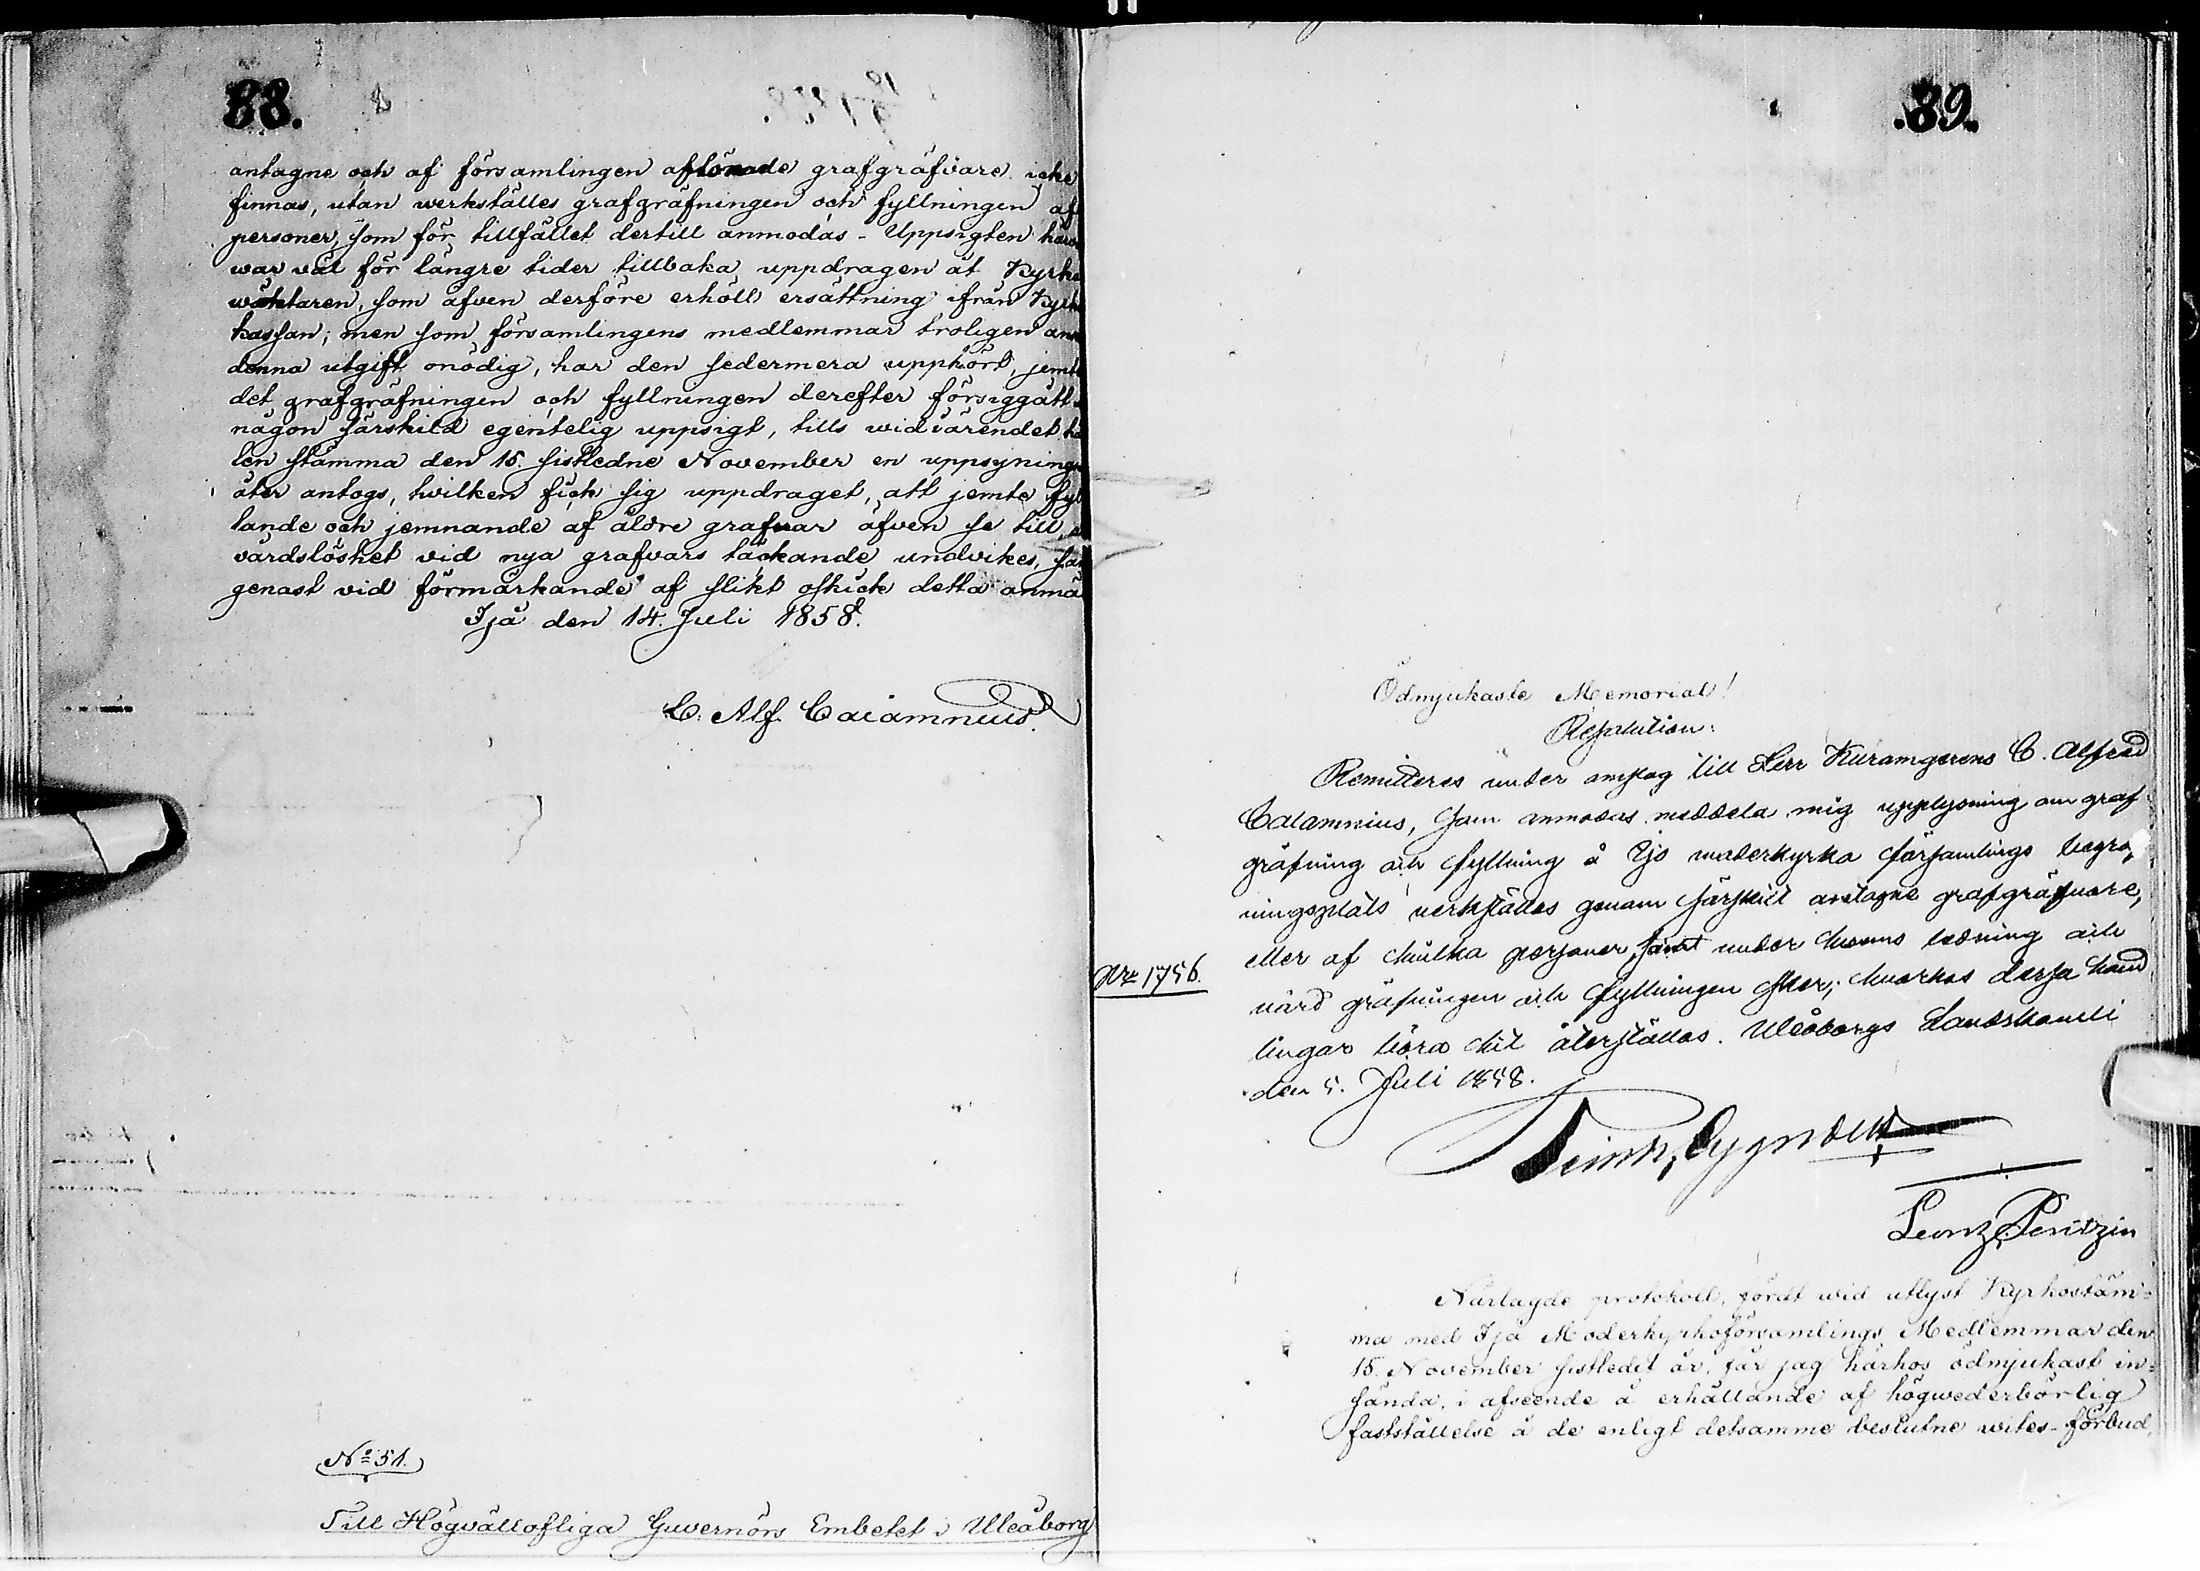 88.
antagne och af församlingen aflönade grafgräfvare icke
finnas, utan werkställes grafgräfningen och fyllningen af
personer, som för tillfället dertill anmodas - Uppsigten här
war väl för längre tider tillbaka uppdragen åt Kyrko
wäktaren, som äfven derföre erhöll ersättning ifrån Kyrko
kassan; men som församlingens medlemmar troligen an
denna utgift onödig, har den sedermera upphört, jemte
det grafgräfningen och fyllningen derefter försiggått
någon särskild egentelig uppsigt, tills wid värendet
len stämma den 15. sistledne November en uppsynings
åter antogs, hvilken fick sig uppdraget, att jemte fyl
lande och jemnande af äldre grafvar äfven se till,
vårdslöshet vid nya grafvars täckande undvikes,
genast vid förmärkande af slikt oskick detta anmä
Ijå den 14. Juli 1858.
C. Alf. Calamnius.
No 51.
Till Högvällofliga Guvernörs Embetet i Uleåborg
89.
Ödmjukaste Memorial!
Resolution:
Remitteras under omslag till Herr C. Alfred
Calamnius, som anmodas meddela mig upplysning om graf
gräfning och fyllning å Ijo moderkyrka församlings begraf
ningsplats verkställes genom särskilt antagne grafgräfvare,
eller af hvilka personer, samt under hvems ledning och
vård gräfningen och fyllningen sker; hvarhos dessa hand
lingar böra hit återställas. Uleåborgs Landskansli
den 5. Juli 1858.
No 1756.
Cygnæus
Närlagde protokoll, fördt wid utlyst Kyrkostäm=
ma med Ijå Moderkyrkoförsamlings Medlemmar den
15. November sistledit år, får jag härhos ödmjukast in=
sända, i afseende å erhållande af högwederbörlig
fastställelse å de enligt detsamme beslutne wites-förbud,